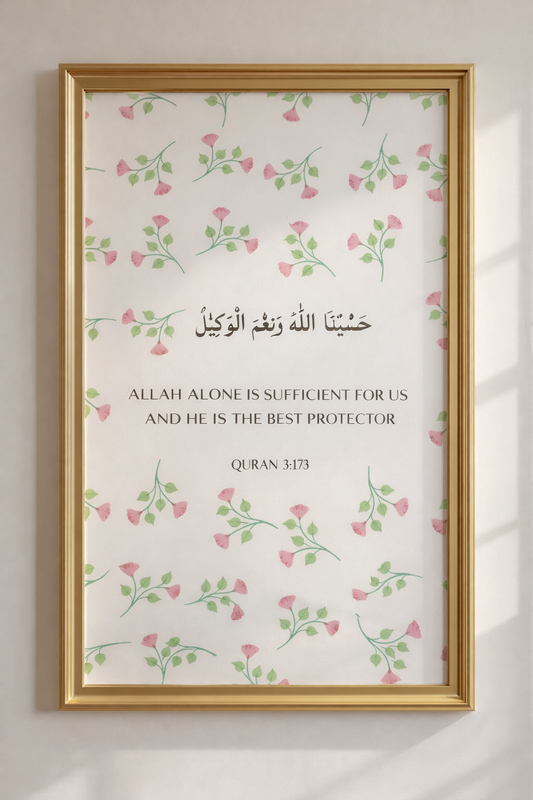 اللّٰهُ وَنِعْمَ الْوَكِيْلُ
ALLAH ALONE IS SUFFICIENT FOR US
AND HE IS THE BEST PROTECTOR
QURAN 3:173